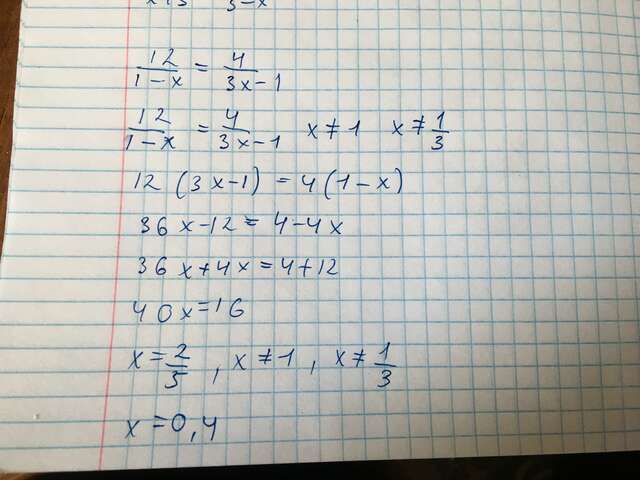 12/(1-x) = 4/(3x-1)
12/(1-x) = 4/(3x-1) x≠1 x≠1/3
12 (3x-1) = 4(1-x)
36x-12=4-4x
36x+4x=4+12
40x=16
x=2/5, x≠1, x≠1/3
x=0,4